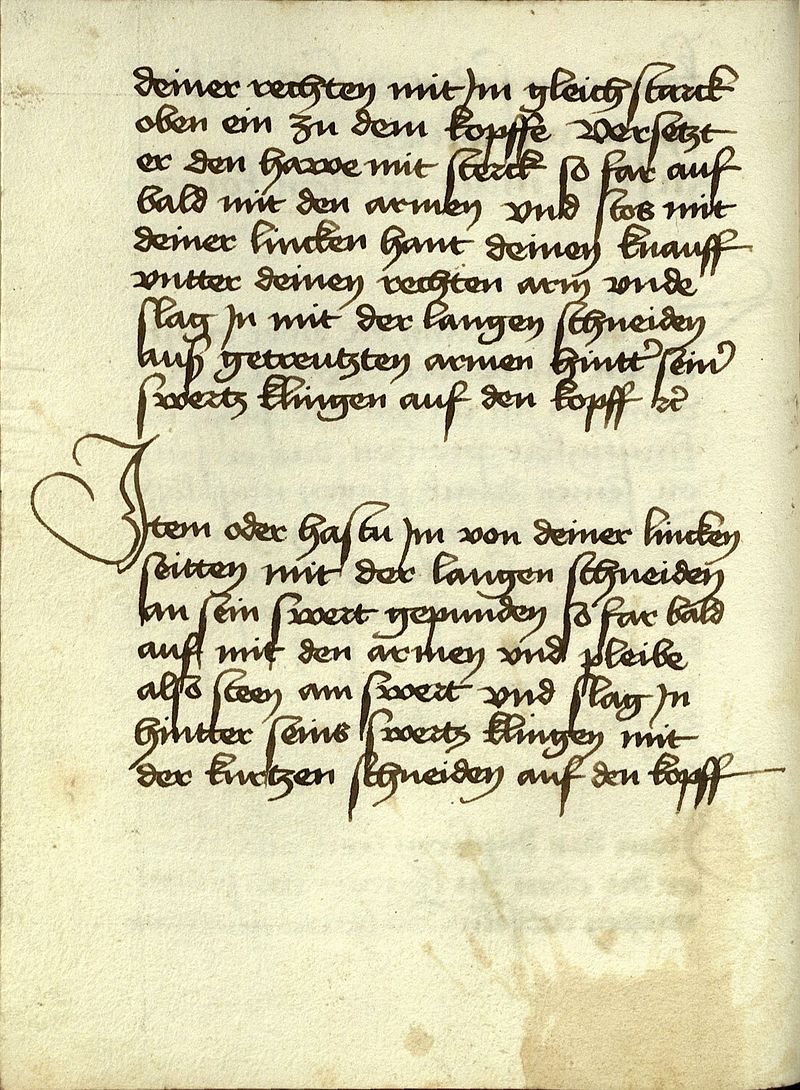 deiner rechten mit Jm gleich starck
oben ein zu dem kopffe versetzt
er den hawe mit sterck so far auf
bald mit den armen vnd stos mit
deiner lincken hant deinen knauff
vntter deinen rechten arm vnde
slag Jn mit der langen schneiden
auß getreutzten armen hintt' sein'
swertz klingen auf den kopff rc
Jtem oder hastu Jm von deiner lincken
seitten mit der langen schneiden
an sein swert gepunden so far bald
auf mit den armen vnd pleibe
also steen am swert vnd slag Jn
hintter seins swertz klingen mit
der kurtzen schneiden auf den kopff